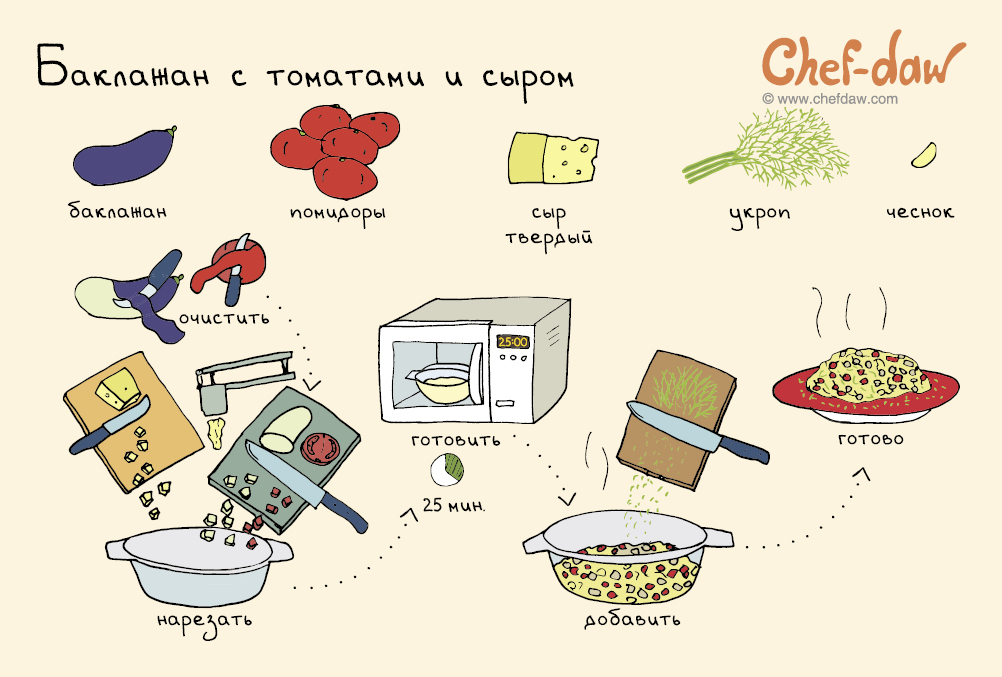 Баклажан с томатами и сыром
Chef-daw
© www.chefdaw.com
баклажан
помидоры
сыр
твердый
укроп
чеснок
очистить
25:00
готовить
25 мин.
готово
нарезать
добавить